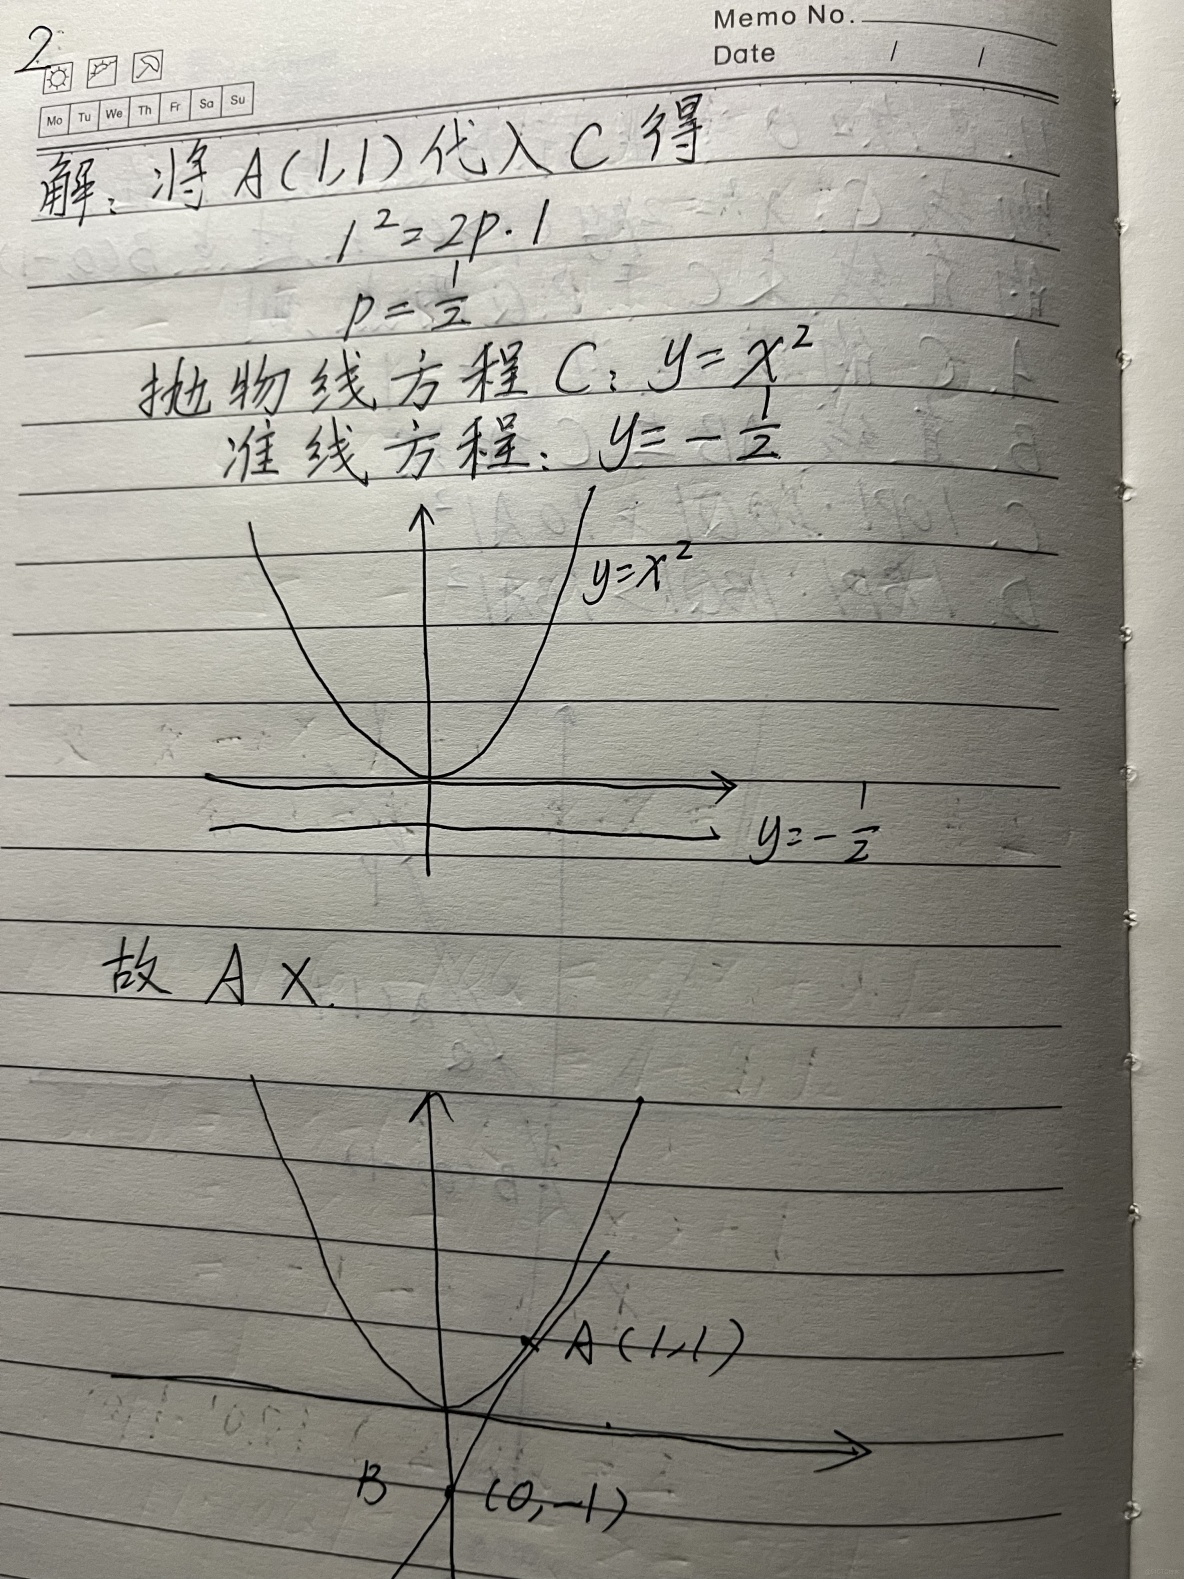 Memo No.
Date / /
2.
Mo Tu We Th Fr Sa Su
解：将 A(1,1) 代入 C 得
1²=2p·1
p=1/2
抛物线方程 C：y=x²
准线方程：y=-1/2
y=x²
y=-1/2
故 A ×.
A(1,1)
B (0,-1)